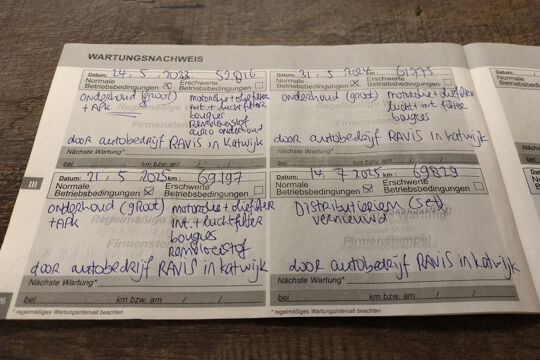 WARTUNGSNACHWEIS
Datum: 24, 5, 2023 52.016
Normale Erschwerte
Betriebsbedingungen Betriebsbedingungen
onderhoud (groot) motorolie + oliefilter
+ APK int. + luchtfilter
bougies
remvloeistof
airco onderhoud
Firmenstempel
door autobedrijf RAVIS in Katwijk
Nächste Wartung*
bei km bzw. am / /
Datum: 31, 5, 2024 km: 61775
Normale Erschwerte
Betriebsbedingungen Betriebsbedingungen
onderhoud (groot) motorolie + oliefilter
lucht + int. filter
bougies
Firmenstempel
door autobedrijf RAVIS in Katwijk
Nächste Wartung*
bei km bzw. am / /
III
Datum: 21, 5, 2025 km: 69.197
Normale Erschwerte
Betriebsbedingungen Betriebsbedingungen
onderhoud (groot) motorolie + oliefilter
+ APK int. + luchtfilter
Regelmäßige
bougies
remvloeistof
Firmenstempel
door autobedrijf RAVIS in Katwijk
Nächste Wartung*
bei km bzw. am / /
* regelmäßiges Wartungsintervall beachten
Datum: 14, 7, 2025 km: 69829
Normale Erschwerte
Betriebsbedingungen Betriebsbedingungen
Distributieriem (set)
vernieuwd
Firmenstempel
door autobedrijf RAVIS in Katwijk
Nächste Wartung*
bei km bzw. am / /
* regelmäßiges Wartungsintervall beachten